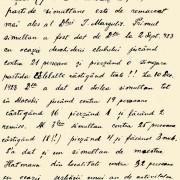 parte de simultane este de remarcat
mai ales al D-lui I. Margulit. Primul
simultan a fost dat de D-sa la 2 Sept. 923
cu ocazia deschiderii clubului jucând
contra 21 persoane și pierzând o singură
partidă câștigând 20 !! La 10 Dec.
1923 D-sa a dat al doilea simultan tot
în jucând contra 19 persoane
câștigând 16 pierzând 1 și făcând 2
remise. Al simultan contra 25 persoane
câștigând 18 (!!) pierzând 4 și făcând 3 rem.
S'a dat și un simultan de maestru
Hartmann din localitate contra 32 persoane
cu ocazia unui an de activitate